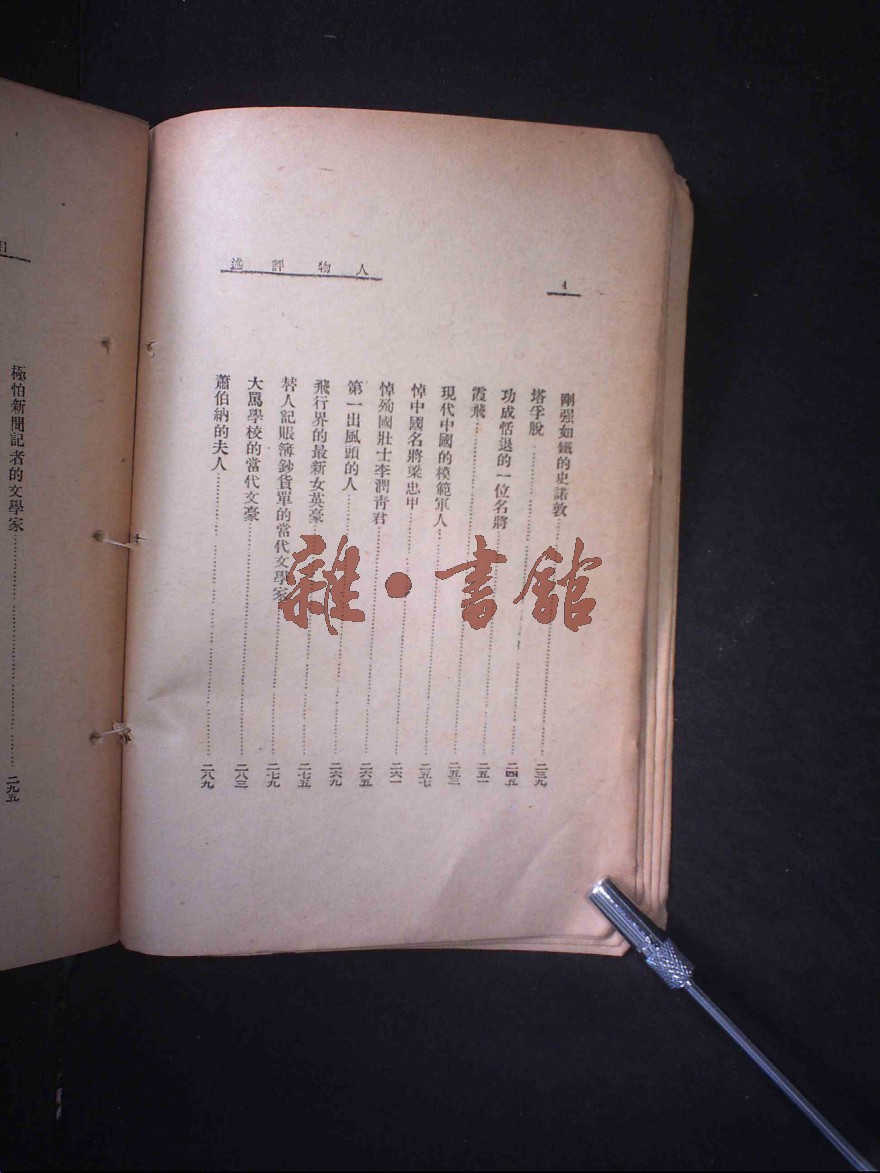 人物評述
4
剛强如鐵的史諾敦……二三九
塔孚脫……二四五
功成恬退的一位名將……二五一
霞飛……二五三
現代中國的模範軍人……二五七
悼中國名將梁忠甲……二六一
悼殉國壯士李潤青君……二六五
第一出風頭的人……二六九
飛行界的最新女英豪……二七五
替人記賬簿鈔貨單的當代文學家……二七九
大罵學校的當代文豪……二八三
蕭伯納的夫人……二八九
目
極怕新聞記者的文學家……二九五
雜·書館